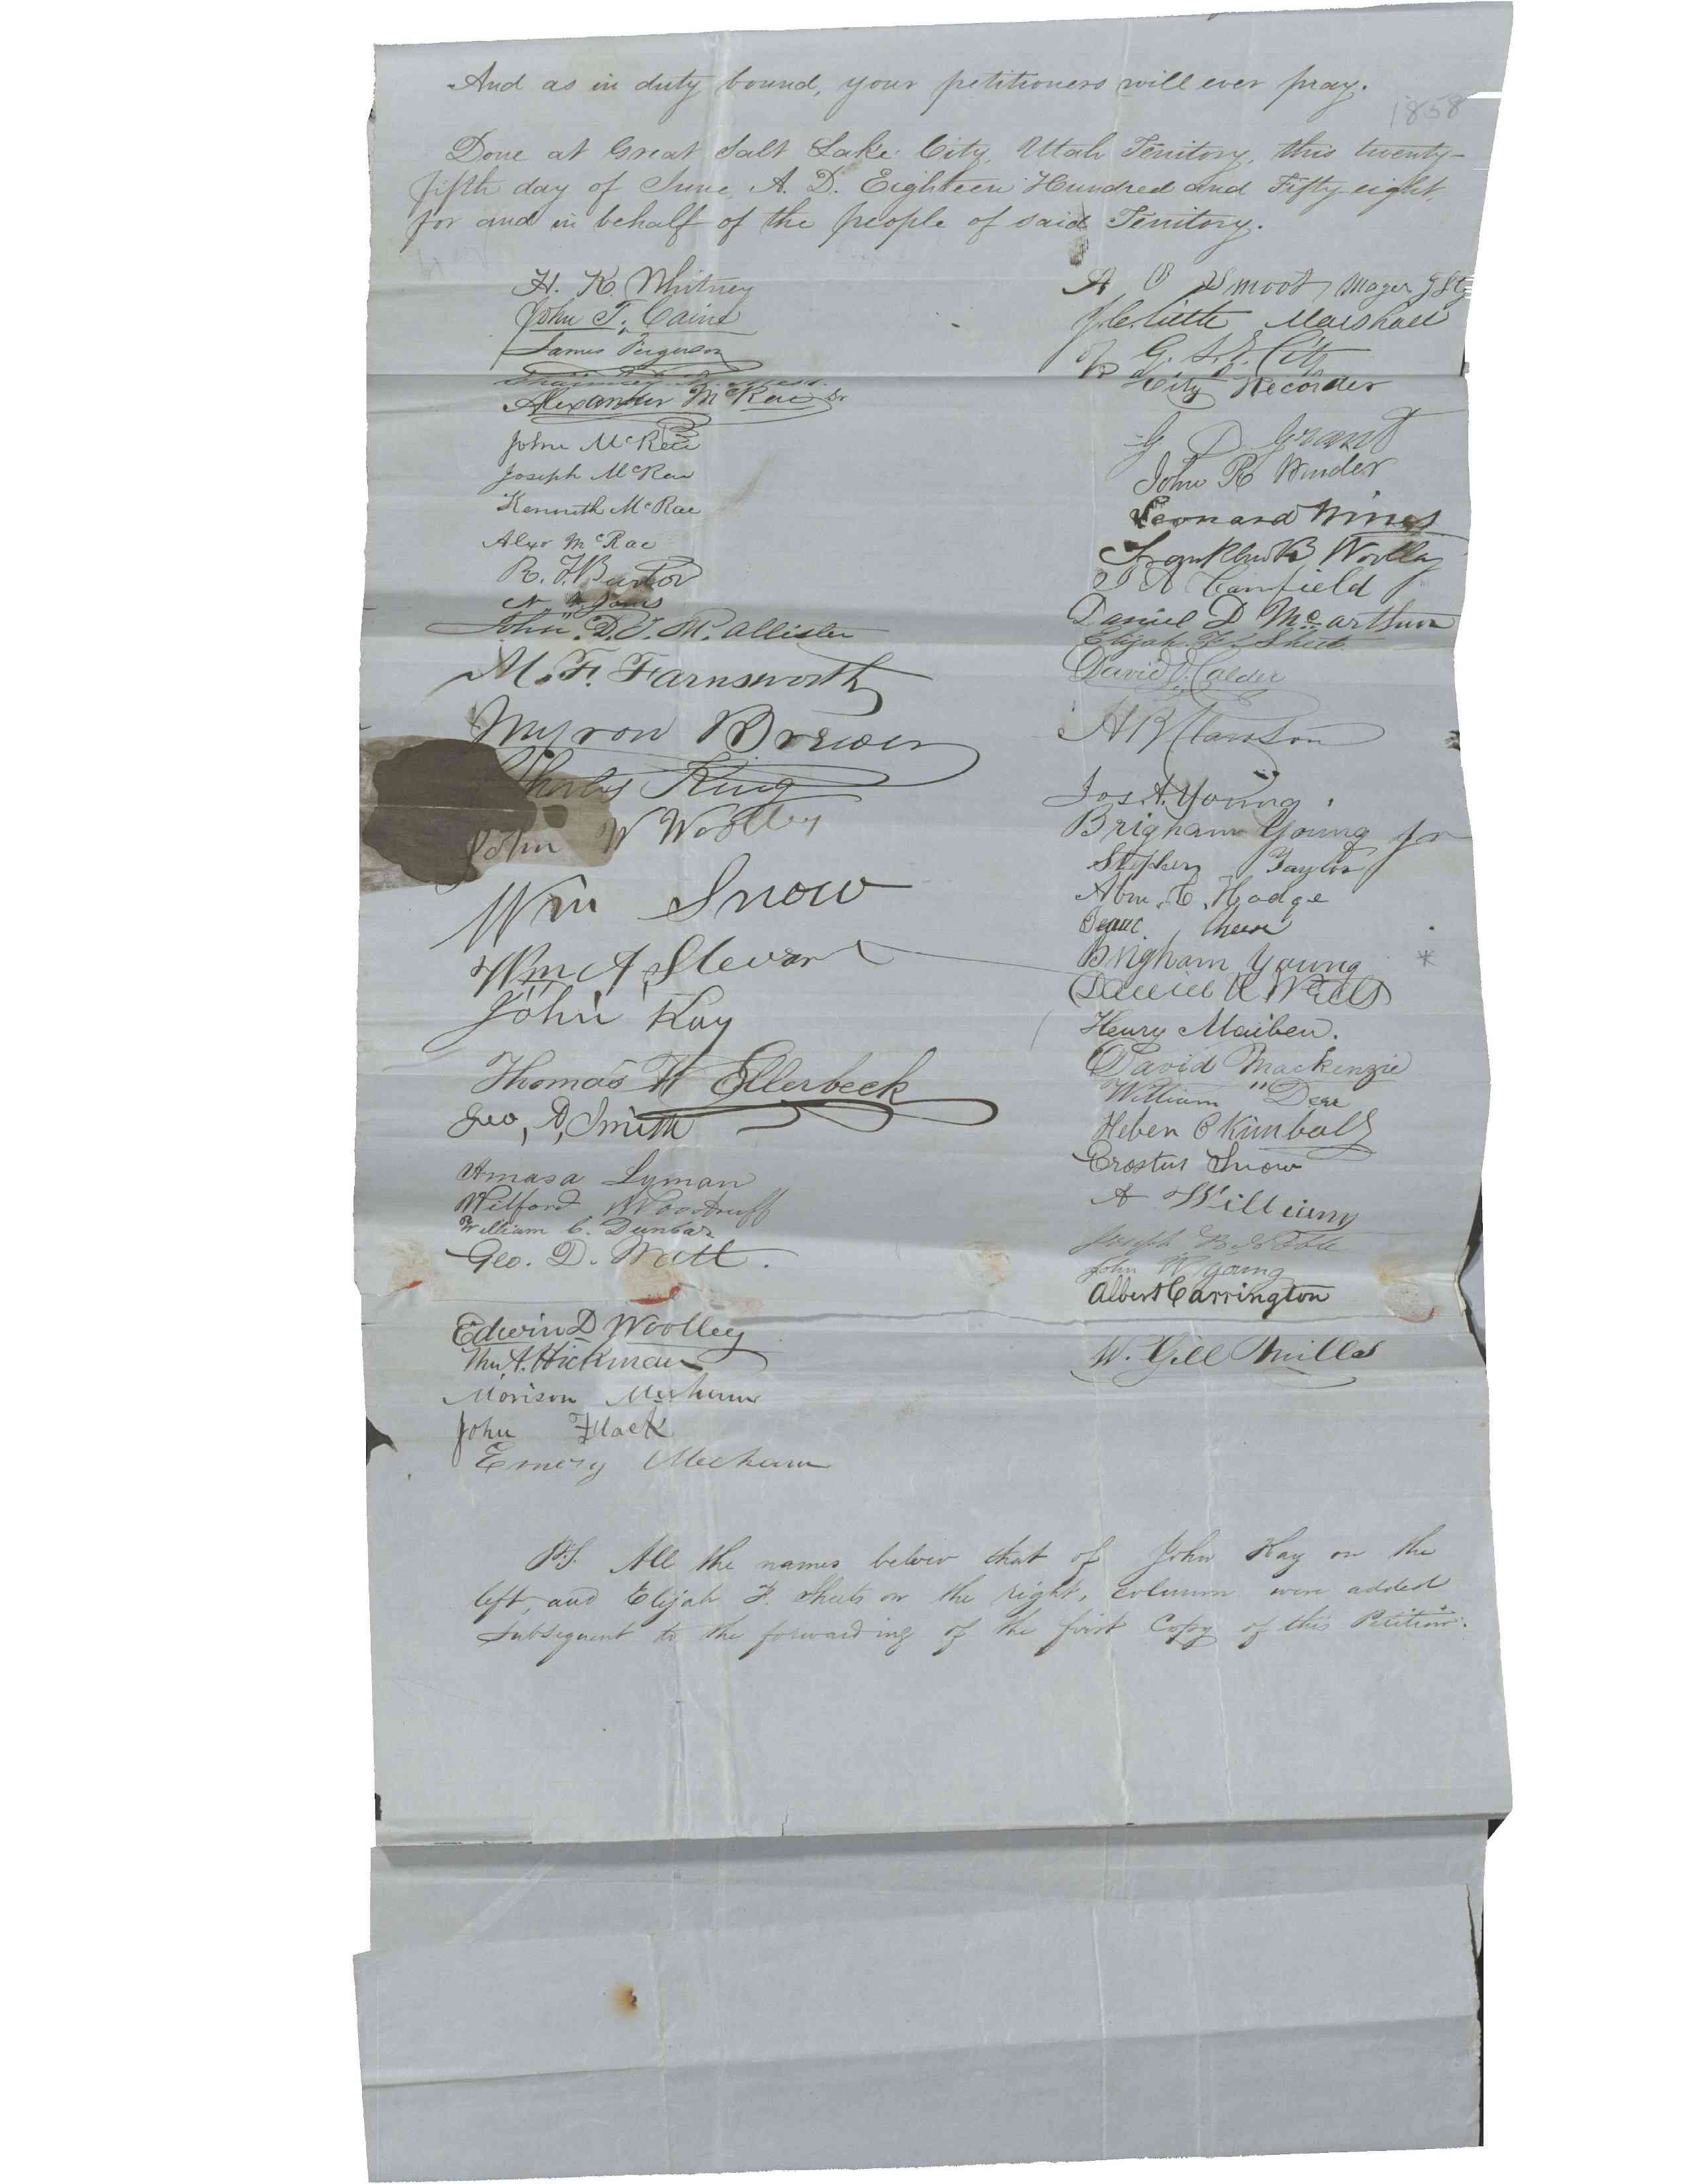 And as in duty bound, your petitioners will ever pray.
1858
Done at Great Salt Lake City, Utah Territory, this twenty-
fifth day of June, A. D. Eighteen Hundred and Fifty eight,
for and in behalf of the people of said Territory.
H. K. Whitney
John T. Caine
James Ferguson
Alexander McRae Sr
John McRae
Joseph McRae
Kenneth McRae
Alexr McRae
R. T. Burton
N. V. Jones
John D. T. McAllister
M. F. Farnsworth
Myron Brewer
Charles King
John W Woolley
Wm Snow
Wm A Stewart
John Kay
Thomas W Ellerbeck
Geo. A. Smith
Amasa Lyman
Wilford Woodruff
William C. Dunbar
Geo. D. Watt.
Edwin D Woolley
Wm A. Hickman
Morison Mecham
John Flack
Emery Mecham
A O Smoot, Mayor G S L C
J. C. Little Marshall
of G. S. L. City
City Recorder
G D Grant
John R Winder
Leonard Wines
Franklin B Woolley
Canfield
Daniel D McArthur
Elijah F. Sheets
David O. Calder
H B Clawson
Jos. A. Young.
Brigham Young Jr
Stephen Taylor
Abm. C. Hodge
Isaac
Brigham Young *
Daniel H. Wells
Henry Maiben.
David Mackenzie
William Derr
Heber C Kimball
Erastus Snow
A Williams
Joseph B Noble
John W Young
Albert Carrington
W. Gill Mills
P.S. All the names below that of John Kay on the
left, and Elijah F. Sheets on the right, column were added
subsequent to the forwarding of the first Copy of this Petition.